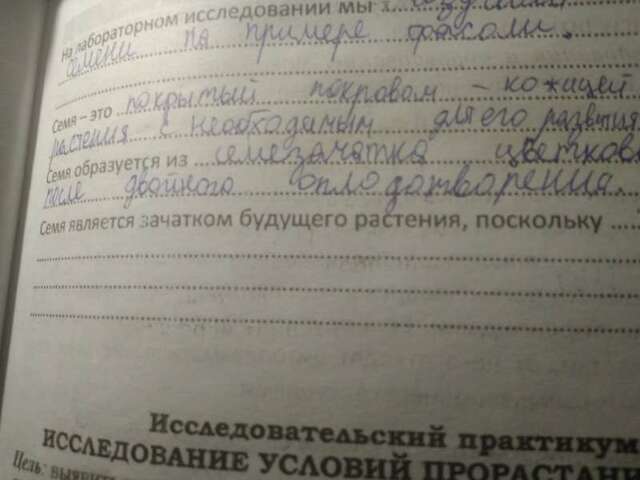 На лабораторном исследовании мы
семени на примере фасоли.
Семя – это покрытый покровом – кожицей
растения с необходимым для его развития
Семя образуется из семезачатка цветков
после двойного оплодотворения.
Семя является зачатком будущего растения, поскольку
Исследовательский практикум
ИССЛЕДОВАНИЕ УСЛОВИЙ ПРОРАСТАНИ
Цель: